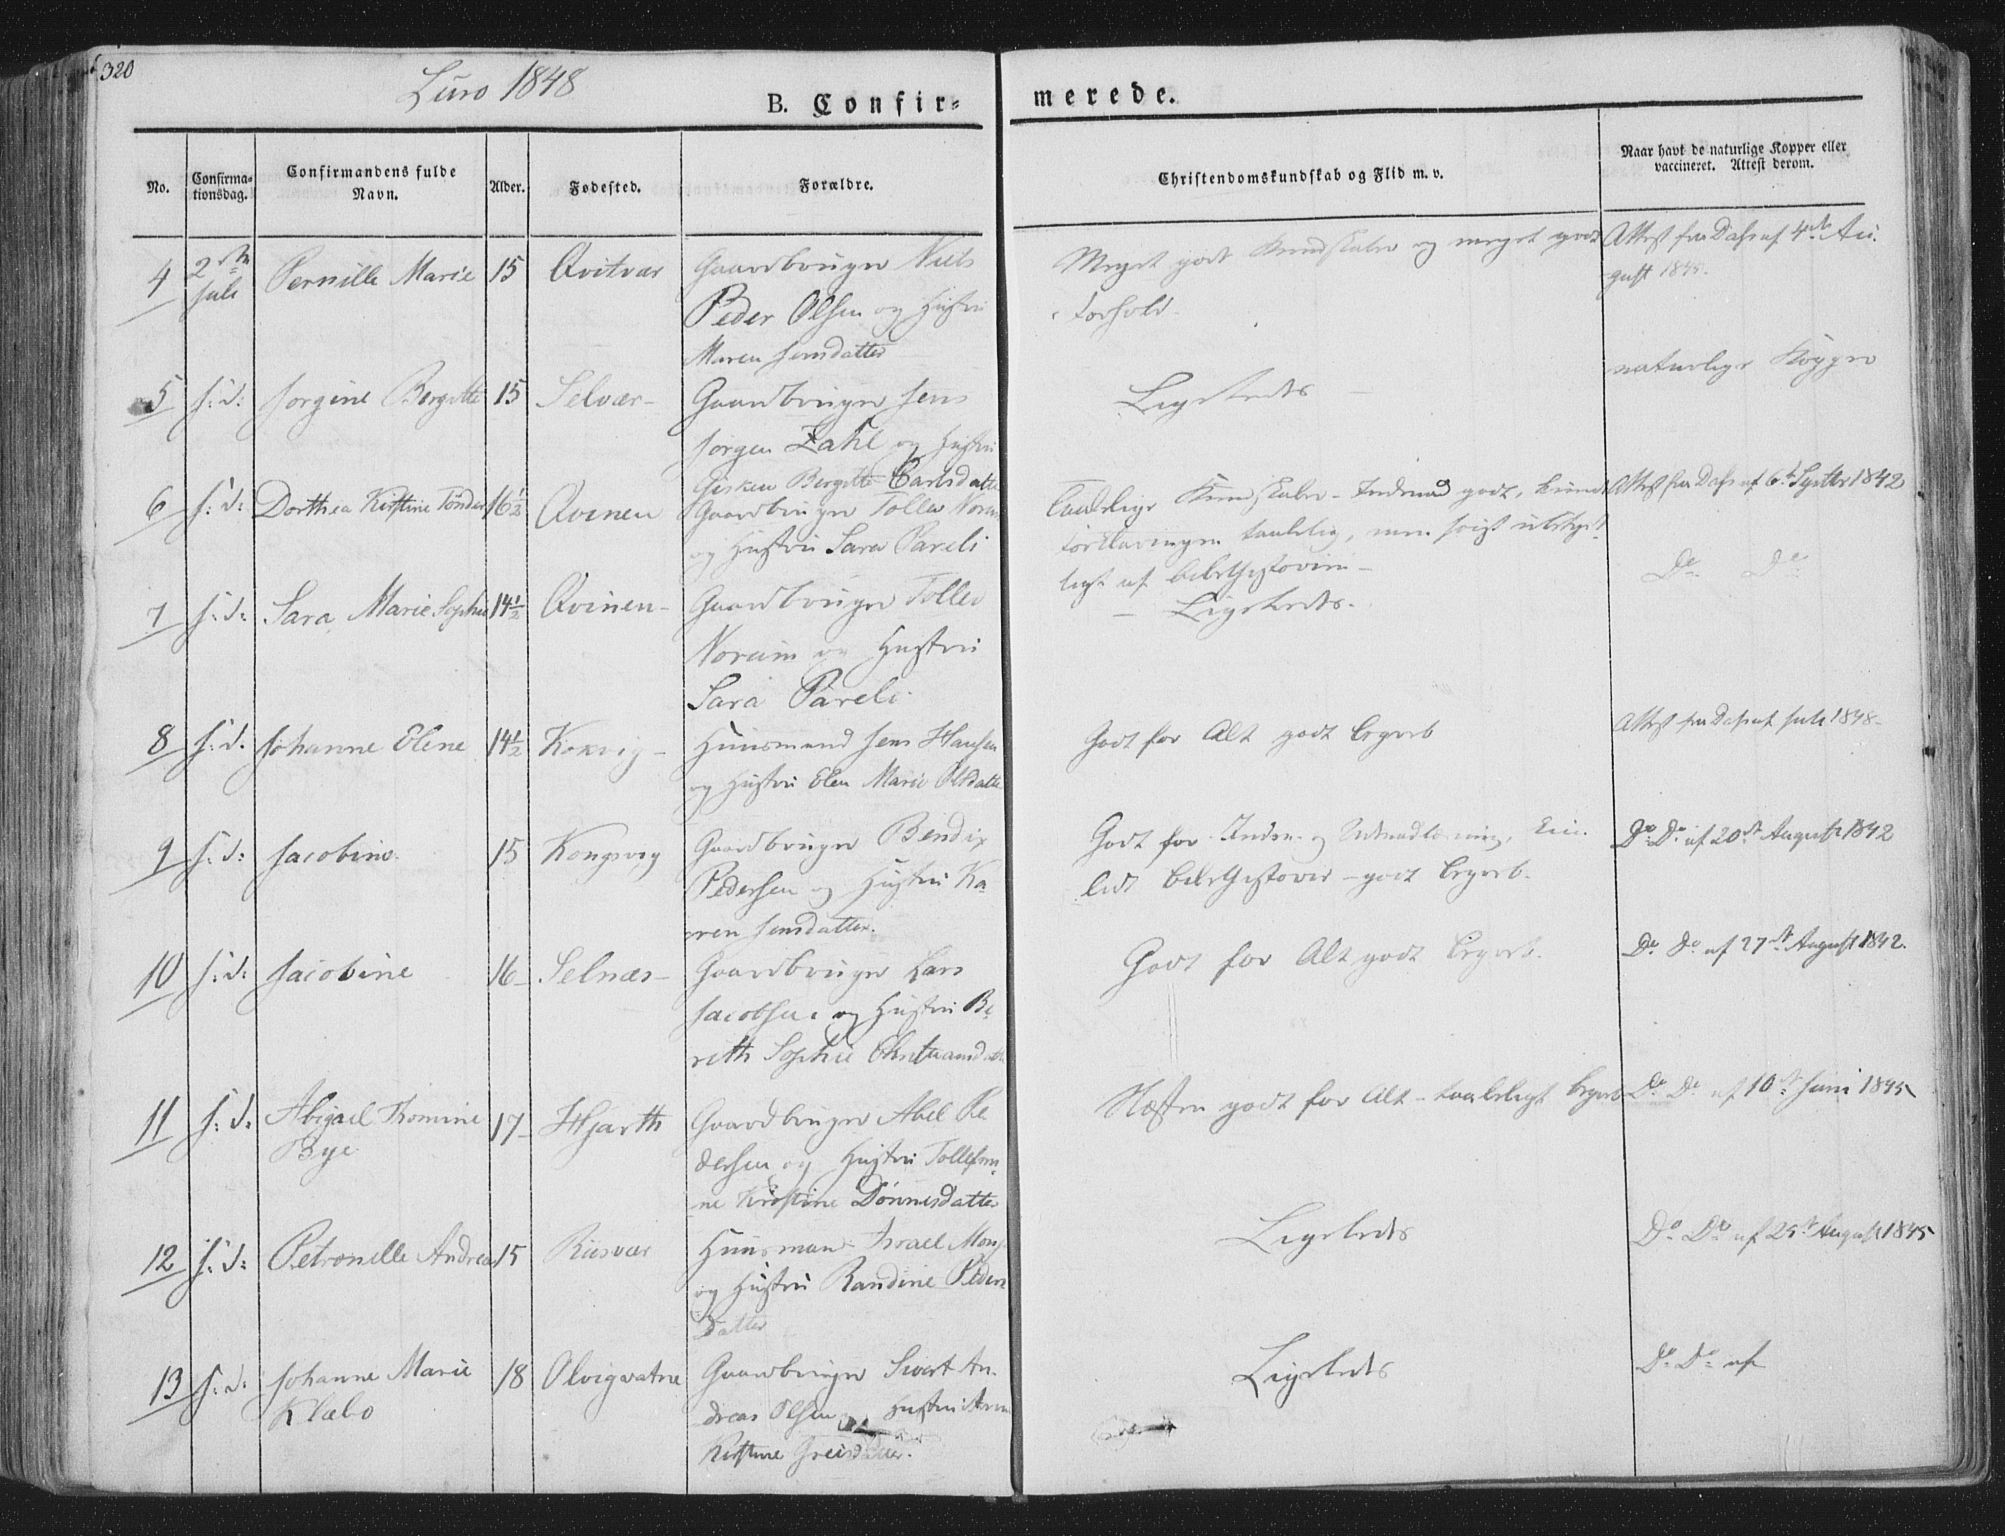 320
Lurø 1848
B. Confir=
merede.
No.
Confirma=
tionsdag.
Confirmandens fulde
Navn.
Alder.
Fødested.
Forældre.
Christendomskundskab og Flid m. v.
Naar havt de naturlige Kopper eller
vaccineret. Attest derom.
4
2den
Juli
Pernille Marie
15
Qvitvær
Gaardbruger Niels
Peder Olsen og Hustru
Maren Jensdatter
Meget godt Kundskaber og meget godt
Forhold
Attest fra Dass af 4de Au-
gust 1845.
5
s: d:
Jorgine Bergitte
15
Selvær-
Gaardbruger Jens
Jørgen Zahl og Hustru
Gisken Bergitte Carlsdatter
Ligeledes
naturlige Kopper
6
s: d:
Dorthea Kirstine Tønder
16½
Qvinen
Gaardbruger Tollev
og Hustru Sara Pareli
Taalelige Kundskaber - Indenad godt,
Forklaringen taalelig, men
ligt af Bibelhistorien -
Attest fra Dass af 6te Septbr 1842
7
s: d:
Sara Marie Sophie
14½
Qvinen-
Gaardbruger Tollev
Norum og Hustru
Sara Pareli.
- Ligeledes.
Do Do
8
s: d.
Johanne Elene
14½
Kokvig-
Huusmand Jens Hansen
og Hustru Elen Marie Olsdatter
Godt for Alt godt Begreb
Attest fra Dass af Juli 1848-
9
s: d:
Jacobine
15
Kongsvig
Gaardbruger Bendix
Pedersen og Hustru Ka-
ren Jensdatter.
Godt for Inden- og Udenadlæsning,
Bibelhistorie - godt Begreb.
Do Do af 20de August 1842
10
s: d:
Jacobine
16-
Selnæs-
Gaardbruger Lars
Jacobsen og Hustru Be-
reth Sophie
Godt for Alt godt Begreb.
Do Do af 27de August 1842.
11
s: d.
Abigael Tomine
Bye
17-
Hjarth
Gaardbruger Abel Pe
dersen og Hustru
ne Kirstine Dønnesdatter
Næsten godt for Alt - taaleligt Begreb
Do Do af 10de Juni 1845
12
s: d:
Petronelle Andrea
15
Risvær
Huusmand Israel
og Hustru Randine Peders
datter
Ligeledes
Do Do af 25de August 1845
13
s: d.
Johanne Marie
Klæbo
18
Olvigvatne
Gaardbruger Sivert An-
dreas Olsen og Hustru
Kirstine
Ligeledes
Do Do af